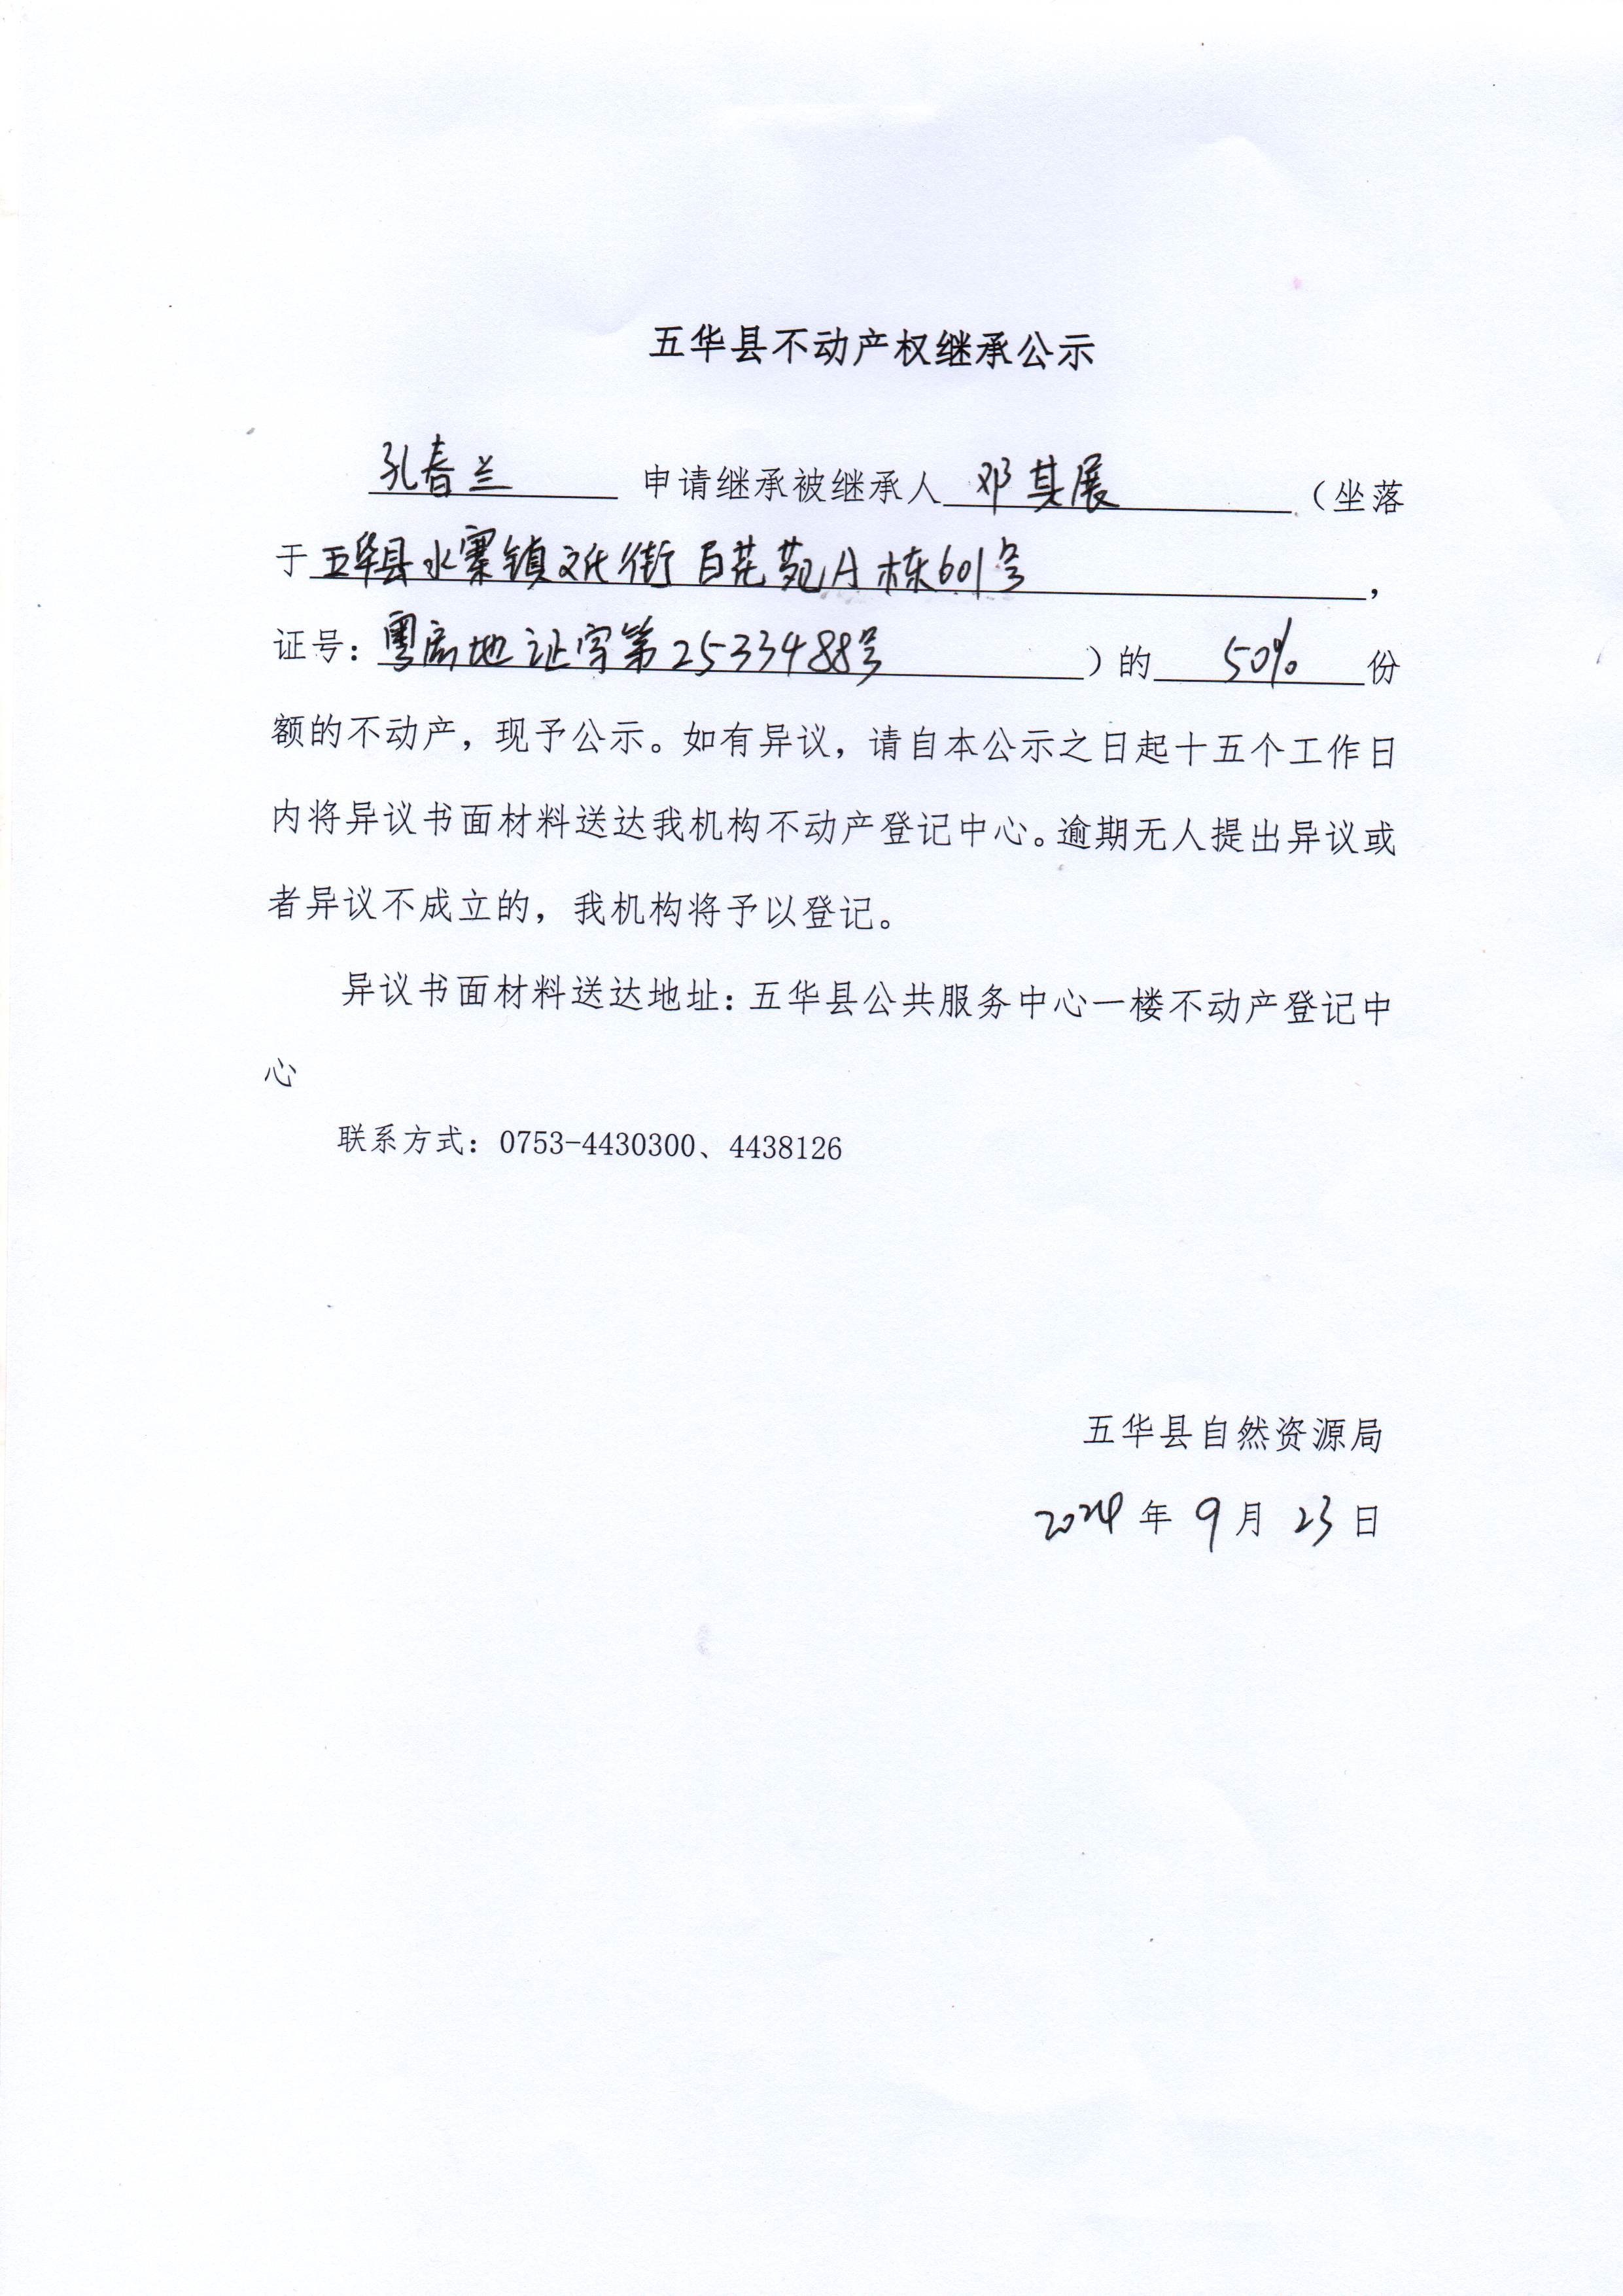 五华县不动产权继承公示
孔春兰 申请继承被继承人 邓其展 （坐落
于五华县水寨镇文化街百花苑A栋601号，
证号：粤房地证字第2533488号）的 50% 份
额的不动产，现予公示。如有异议，请自本公示之日起十五个工作日
内将异议书面材料送达我机构不动产登记中心。逾期无人提出异议或
者异议不成立的，我机构将予以登记。
异议书面材料送达地址：五华县公共服务中心一楼不动产登记中
心
联系方式：0753-4430300、4438126
五华县自然资源局
2024 年 9 月 23 日